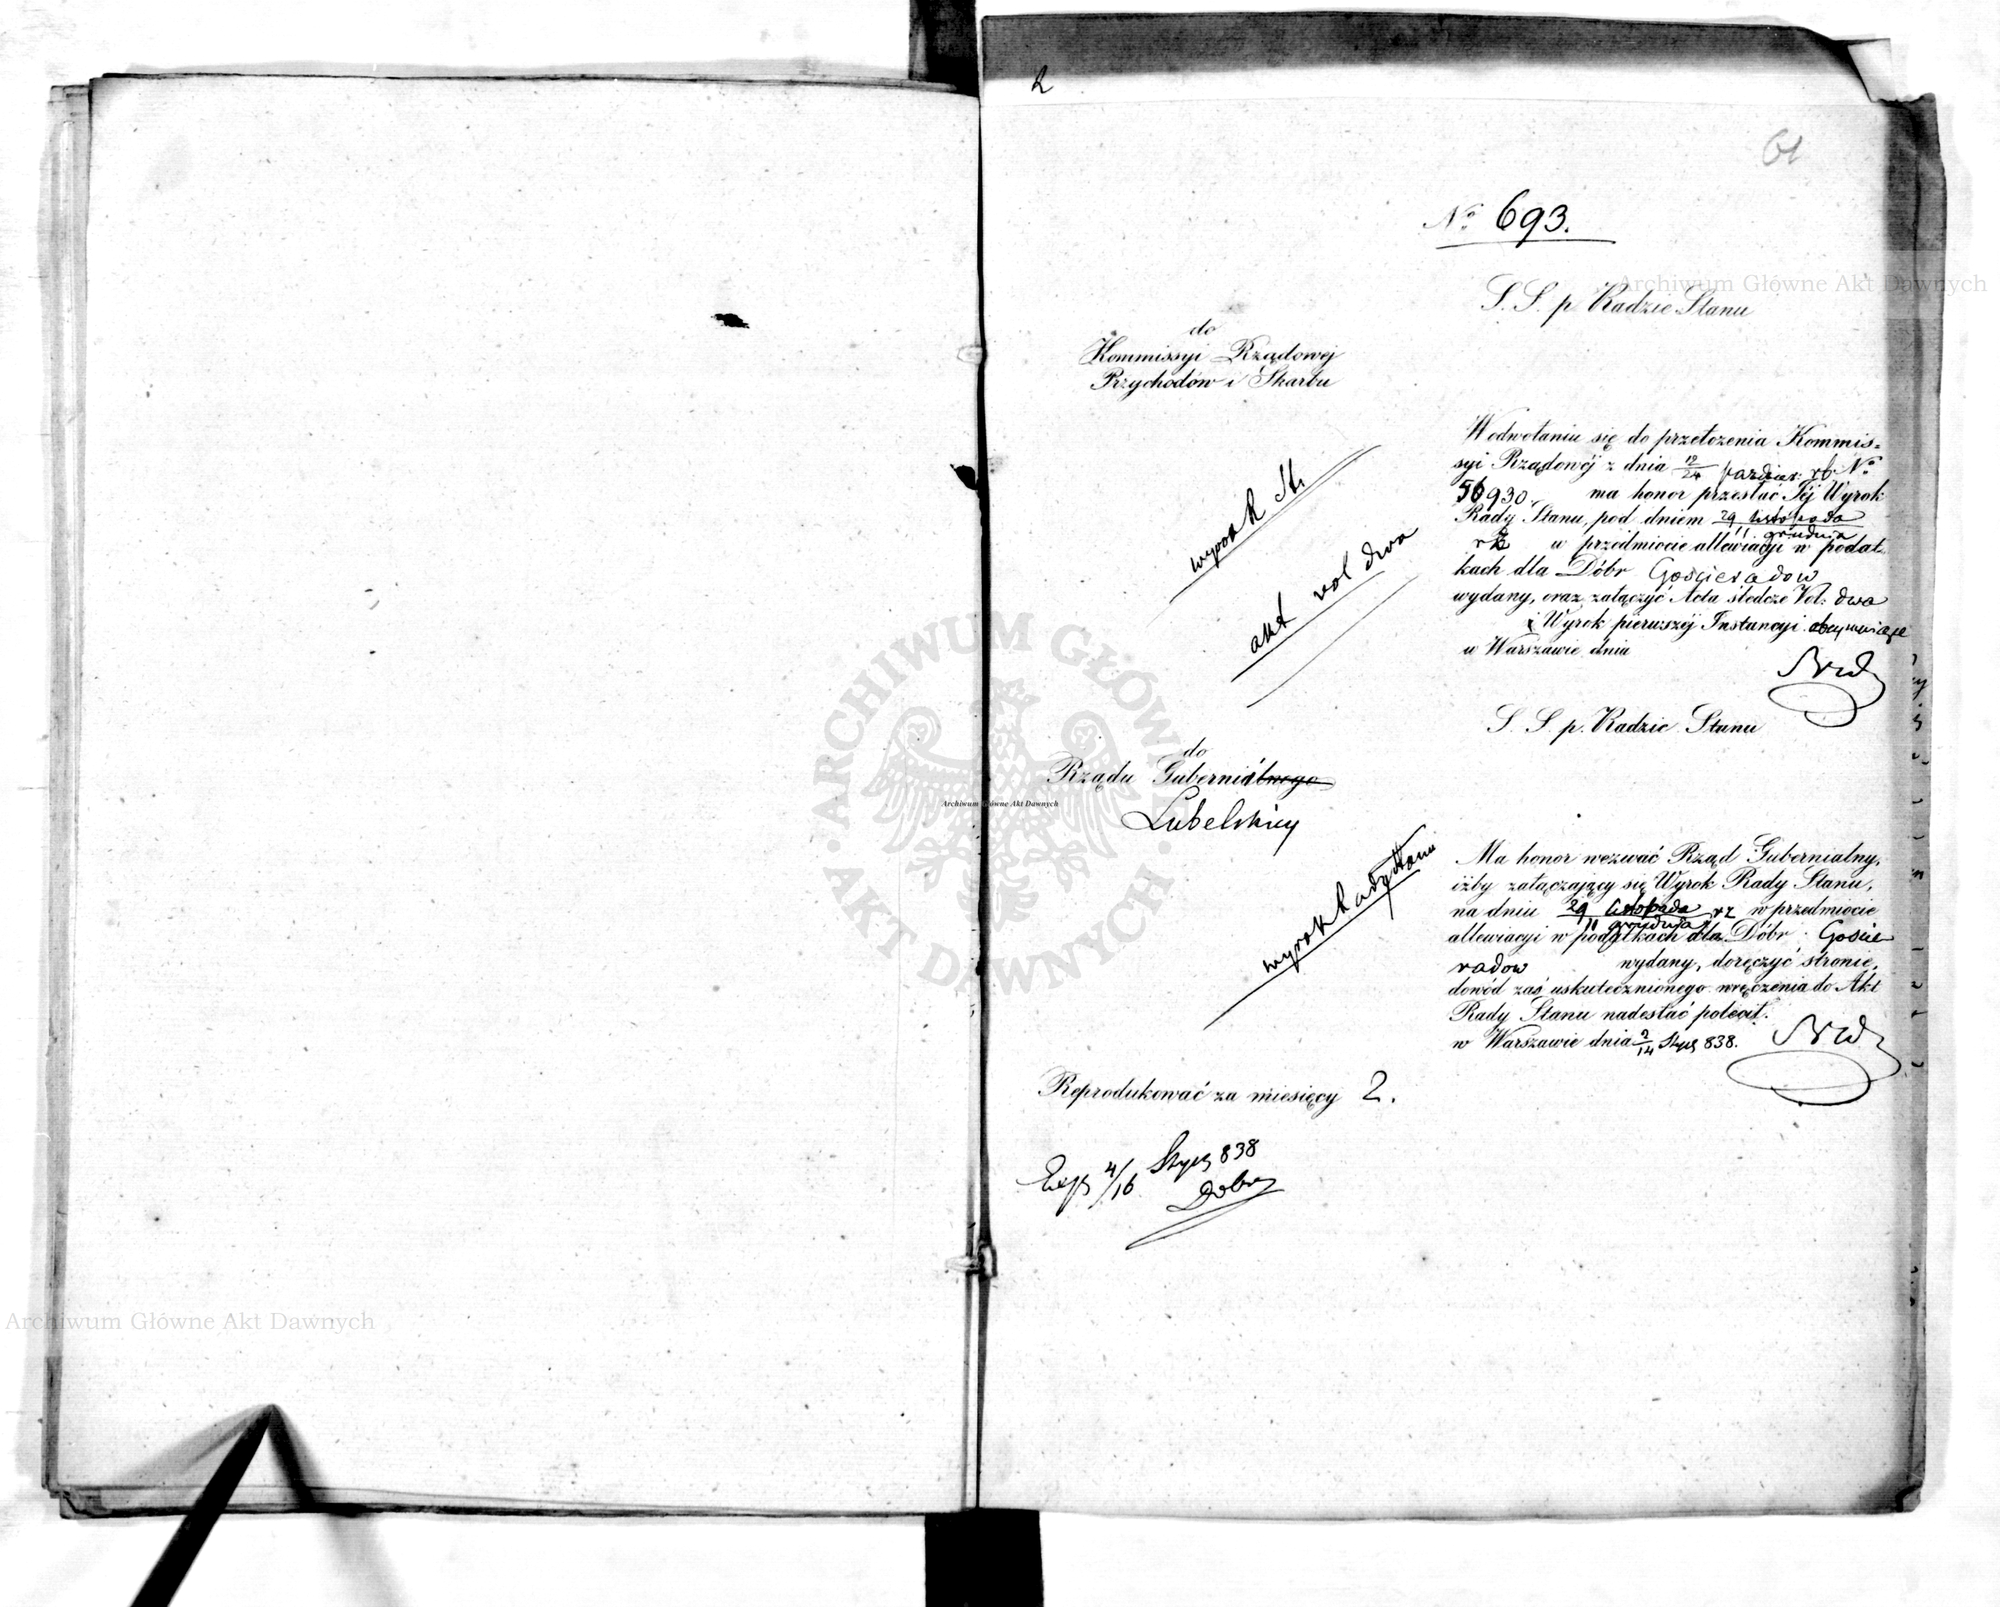 2
61
№ 693.
S. S. p. Radzie Stanu
do
Kommissyi Rządowej
Przychodów i Skarbu
W odwołaniu się do przełożenia Kommis=
syi Rządowéj z dnia 12/24 paździer: rb. №
56930. ma honor przesłać Jéj Wyrok
Rady Stanu, pod dniem 29 listopada
11 grudnia
rz w przedmiocie allewiacyi w podat=
kach dla Dóbr Gościeradow
wydany, oraz załączyć Acta śledcze Vol: dwa
i Wyrok pierwszéj Instancyi
w Warszawie dnia
wyrok St.
akt vol dwa
S. S. p. Radzie Stanu
do
Rządu Gubernialnego
Lubelskiey
Ma honor wezwać Rząd Gubernialny,
iżby załączający się Wyrok Rady Stanu,
na dniu 29 listopada rz w przedmiocie
11 grudnia
allewiacyi w podatkach dla Dóbr Goście
radow wydany, doręczyć stronie,
dowód zaś uskutecznionego wręczenia do Akt
Rady Stanu nadesłać polecił.
w Warszawie dnia 2/14 Stycz 838.
wyrok
Reprodukować za miesięcy 2.
Exp 4/16 Stycz 838
Archiwum Główne Akt Dawnych
Archiwum Główne Akt Dawnych
Archiwum Główne Akt Dawnych
ARCHIWUM GŁÓWNE
AKT DAWNYCH